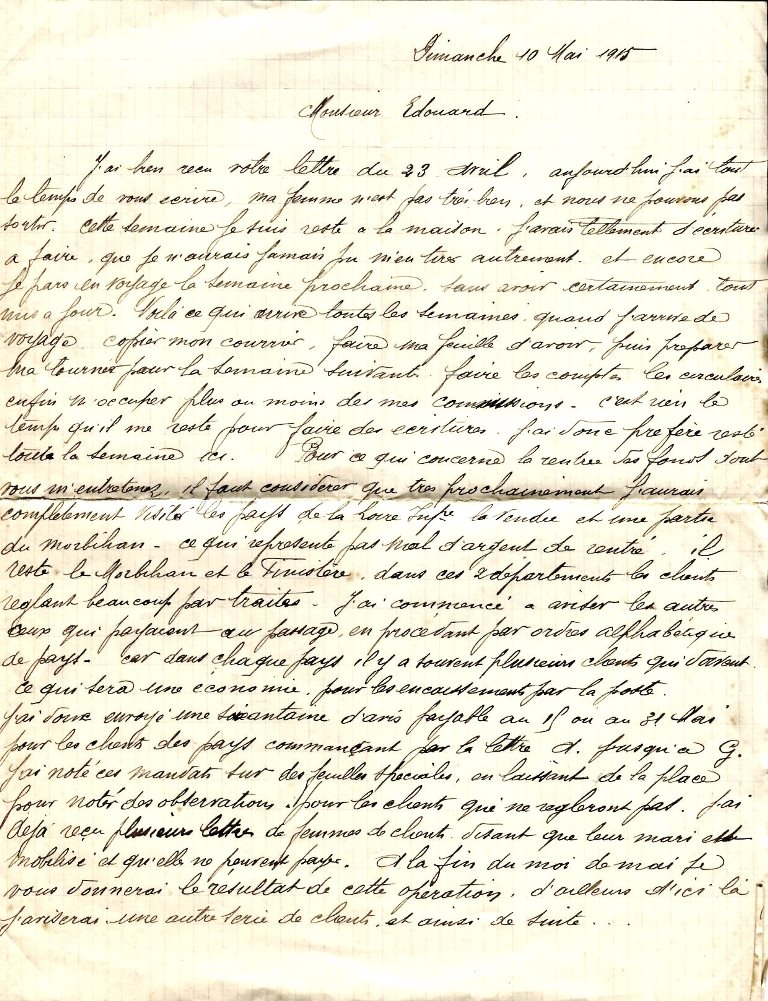 Dimanche 10 Mai 1915
Monsieur Edouard.
J'ai bien recu votre lettre du 23 Avril, aujourd'hui j'ai tout
le temps de vous ecrire, ma femme n'est pas très bien, et nous ne pouvons pas
sortir. Cette semaine je suis resté a la maison. J'avais tellement d'écritures
a faire, que je n'aurais jamais pu m'en tirer autrement. et encore
je pars en voyage la semaine prochaine. sans avoir certainement tout
mis a jour. Voilà ce qui arrive toutes les semaines, quand j'arrive de
voyage, copier mon courrier, faire ma feuille d'avoir, puis preparer
ma tournée pour la semaine suivante. faire les comptes les circulaires
enfin m'occuper plus ou moins des mes commissions. c'est rien le
temps qu'il me reste pour faire des ecritures. J'ai donc préféré resté
toute la semaine ici. Pour ce qui concerne la rentrée des fonds dont
vous m'entretenez, il faut considerer que très prochainement j'aurais
completement visité les pays de la Loire Infre la Vendée et une partie
du Morbihan - ce qui represente pas mal d'argent de rentré. il
reste le Morbihan et le Finistère. dans ces 2 départements les clients
reglant beaucoup par traites - J'ai commencé a aviser les autres
ceux qui payaient au passage, en procédant par ordre alphabétique
de pays - car dans chaque pays il y a souvent plusieurs clients qui doivent.
ce qui sera une économie, pour les encaissements par la poste.
J'ai donc envoyé une soixantaine d'avis payable au 15 ou au 31 Mai
pour les clients des pays commançant par la lettre A. jusqu'a G.
J'ai noté ces mandats sur des feuilles speciales, en laissant de la place
pour noter des observations. pour les clients que ne regleront pas. J'ai
déjà reçu plusieurs lettres de femmes de clients. disant que leur mari est
mobilisé et qu'elle ne peuvent paye. A la fin du moi de mai je
vous donnerai le résultat de cette opération, d'ailleurs d'ici là
j'aviserai une autre serie de clients, et ainsi de suite...